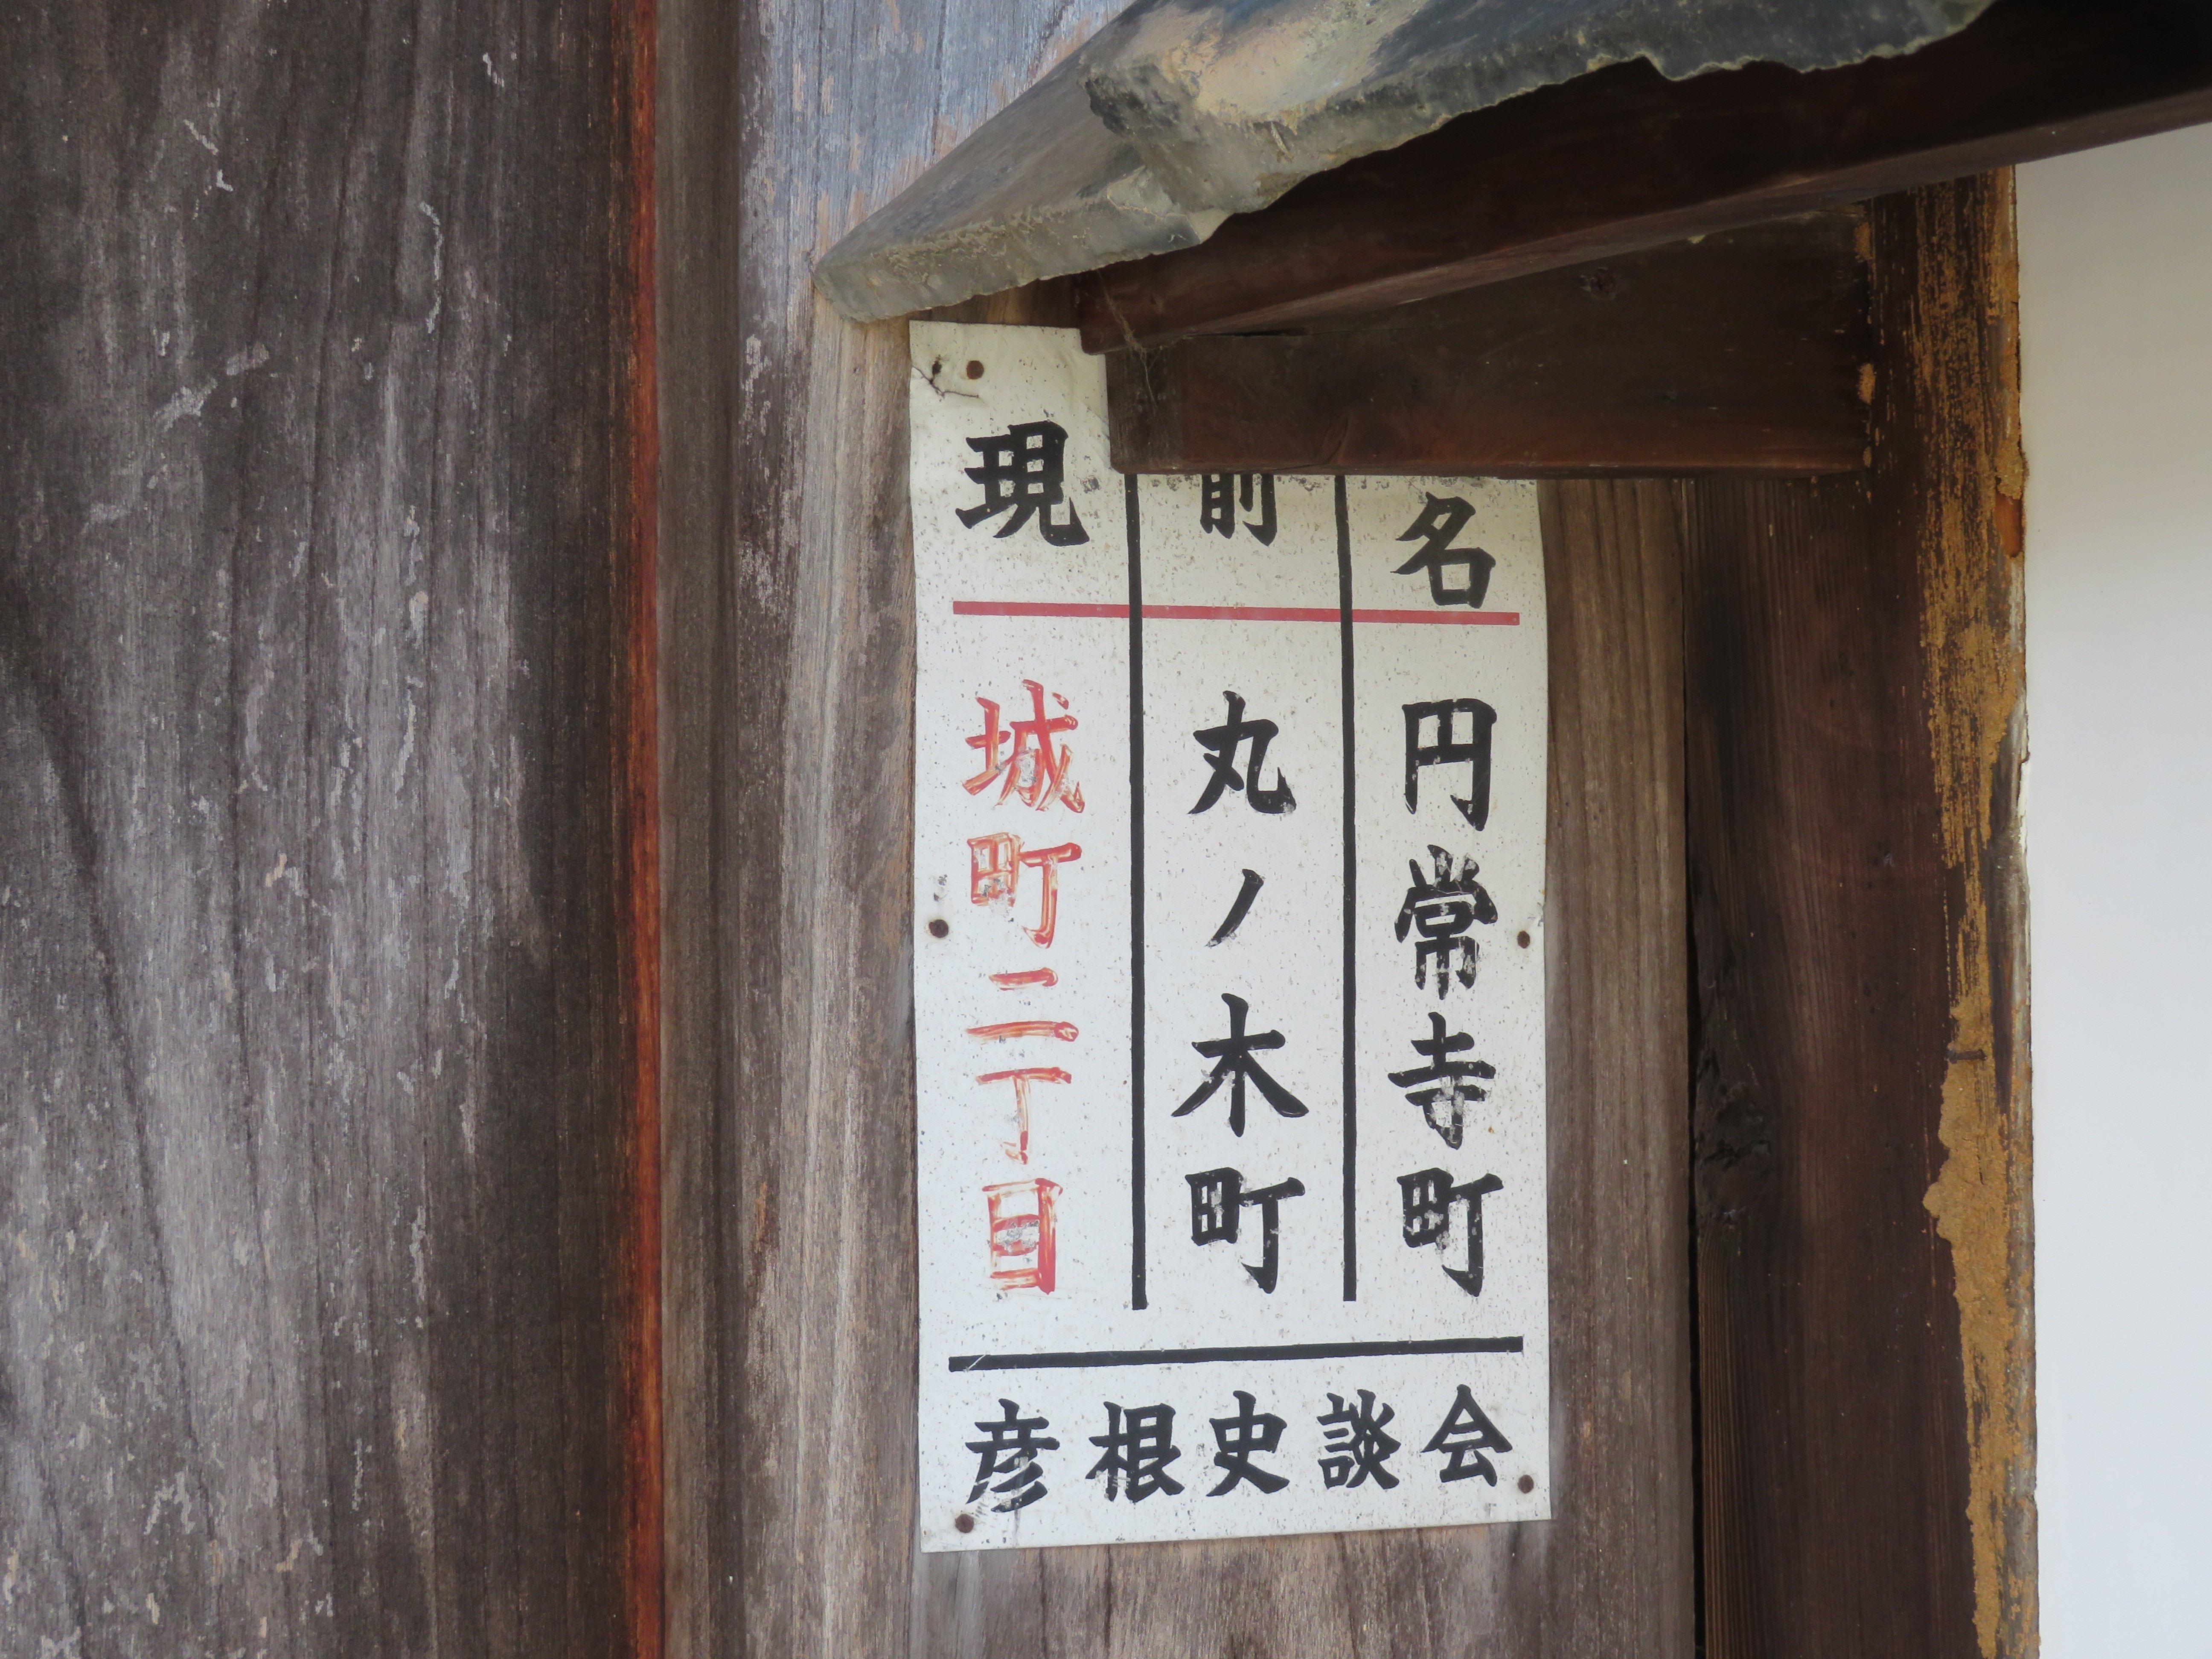 名 円常寺町
前 丸ノ木町
現 城町二丁目
彦根史談会